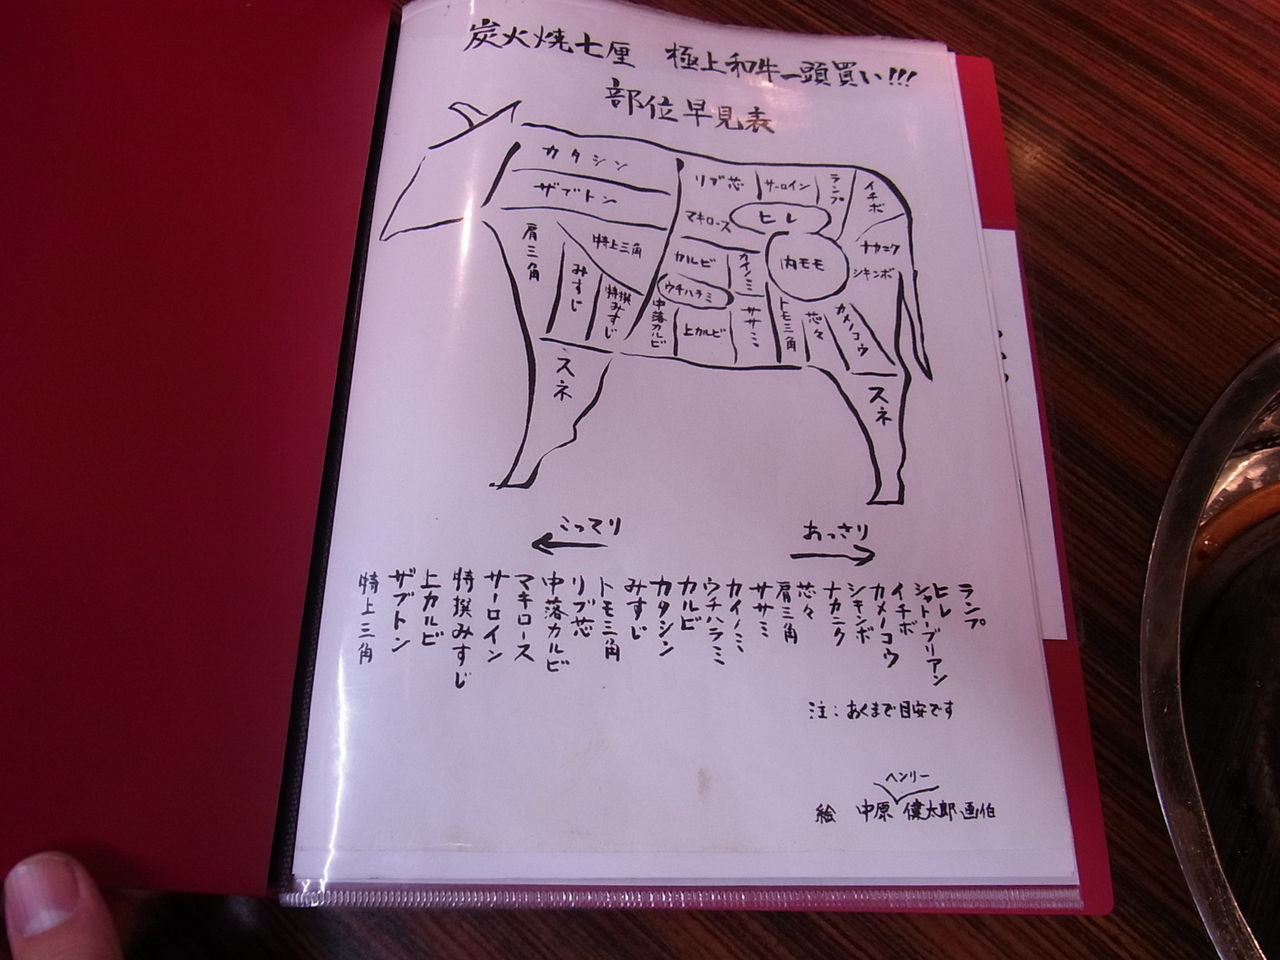 炭火焼七厘 極上和牛一頭買い!!!
部位早見表
カタシン
ザブトン
肩三角
みすじ
特上三角
特撰みすじ
スネ
リブ芯
サーロイン
ランプ
イチボ
マキロース
ヒレ
カルビ
カイノミ
内モモ
ナカニク
シキンボ
ウチハラミ
中落カルビ
上カルビ
ササミ
トモ三角
芯々
カメノコウ
スネ
こってり
あっさり
ランプ
ヒレ
シャトーブリアン
イチボ
カメノコウ
シキンボ
ナカニク
芯々
肩三角
ササミ
カイノミ
ウチハラミ
カルビ
カタシン
みすじ
トモ三角
リブ芯
中落カルビ
マキロース
サーロイン
特撰みすじ
上カルビ
ザブトン
特上三角
注:あくまで目安です
ヘンリー
絵 中原 健太郎画伯